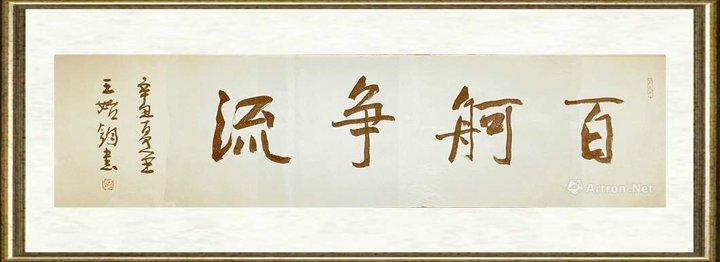 百舸争流
辛丑夏至
王始钧書
Artron.Net